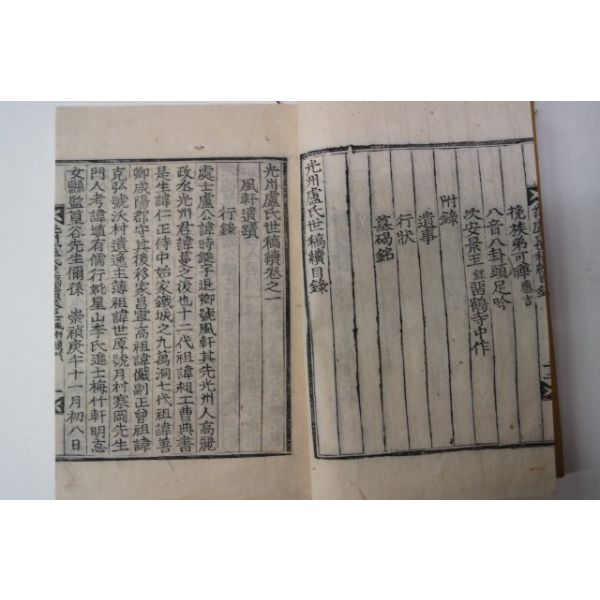 挽族弟可暉應吉
八音八卦頭足吟
次安景玉習鶴寺中作
附錄
遺事
行狀
墓碣銘
光州盧氏世稿續目錄
光州盧氏世稿續卷之一
風軒遺蹟
行錄
處士盧公諱時鋌字退卿號風軒其先光州人高麗
政丞光州君諱蔓之後也十二代祖諱
工曹典書
是生諱仁正侍中始家鐵城之九萬洞七代祖諱善
卿咸陽郡守其後移家昌寧高祖諱
副正曾祖諱
克弘號沃村遺逸主簿祖諱世原號月村寒岡先生
門人考諱塡有儒行妣星山李氏進士梅竹軒明
文縣監篔谷先生爾
孫崇禎庚午十一月初八日